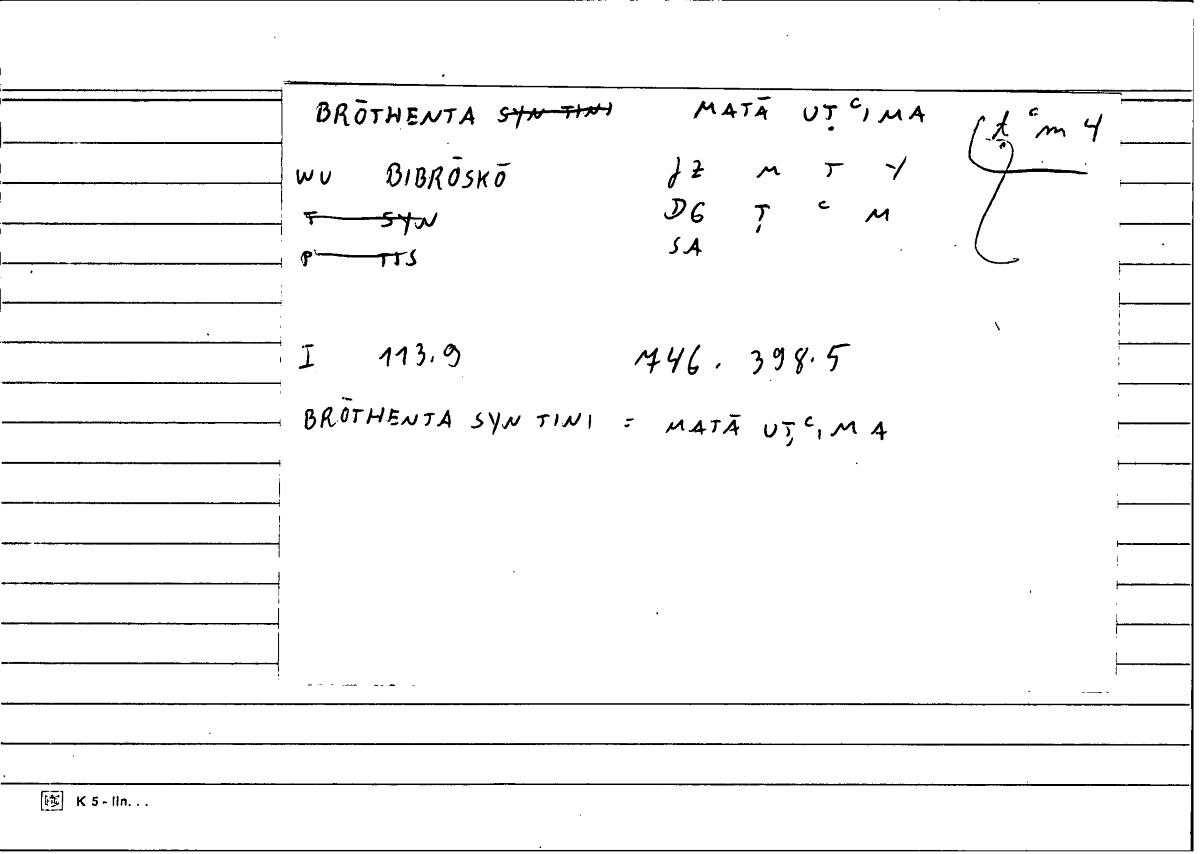 BRŌTHENTA SYN TINI MATĀ UṬ ͨIMA ṭ ͨm 4
WU BIBRŌSKŌ JZ M T Y
F SYN DG Ṭ ͨ M
P TTS SA
I 113.9 746. 398.5
BRŌTHENTA SYN TINI = MATĀ UṬ ͨIMA
K 5 - lln. . .